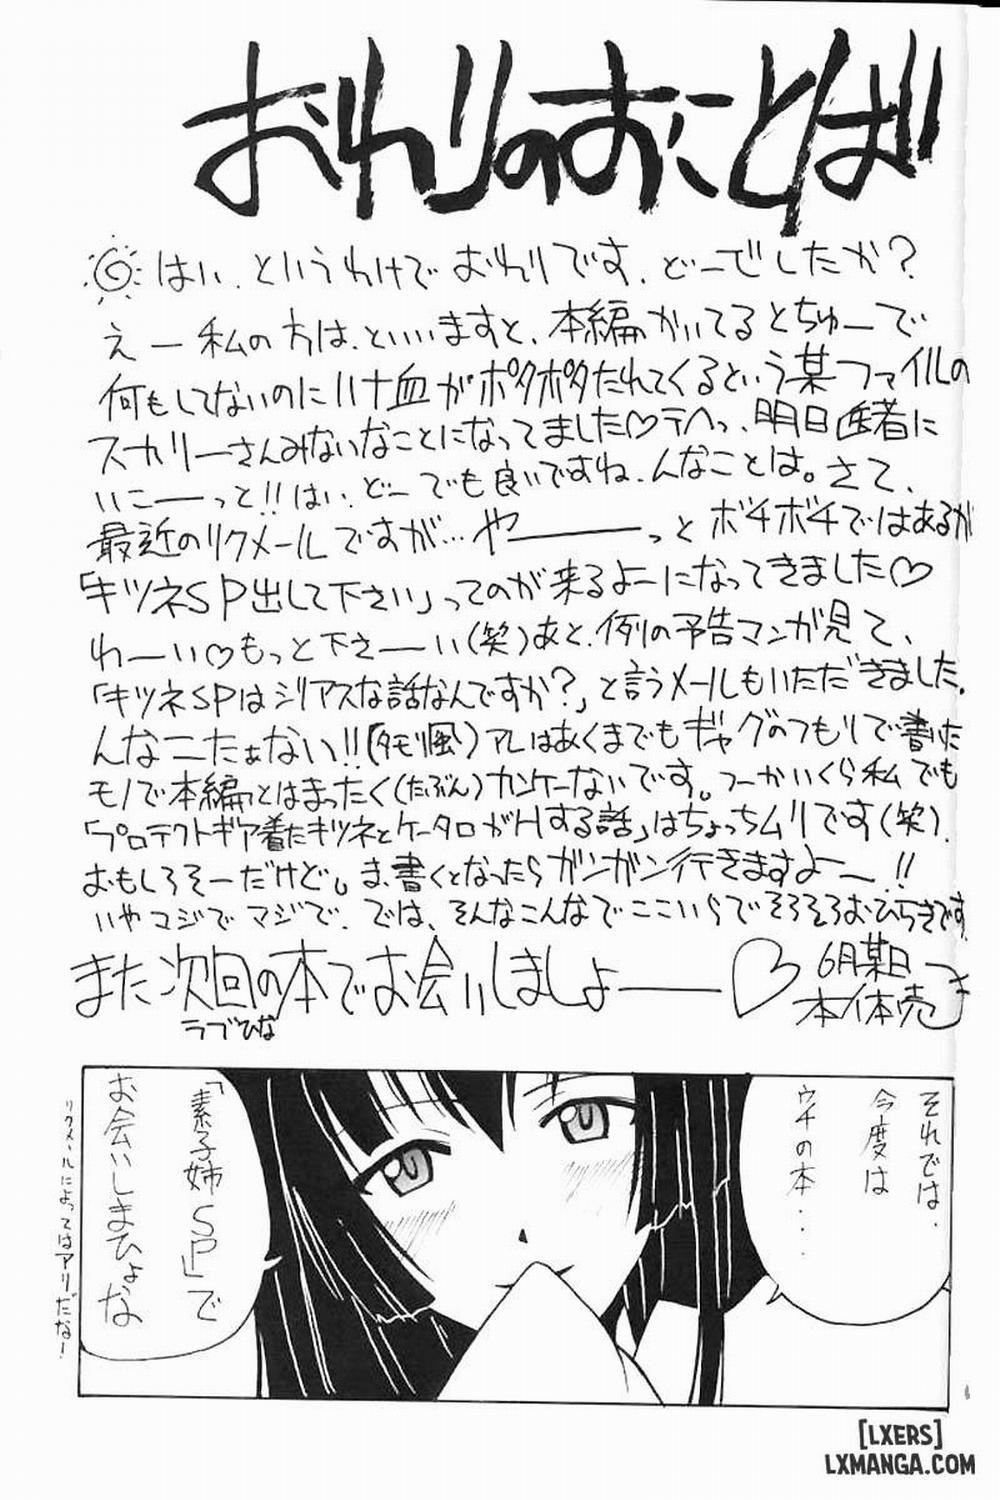 おわりのおことば
はい、というわけでおわりです、どーでしたか？
えー私の方は、といいますと、本編かいてるとちゅーで
何もしてないのにハナ血がポタポタたれてくるという某ファイルの
スカリーさんみないなことになってました♡テヘっ、明日医者に
いこーーっと!!はい、どーでも良いですね、んなことは。さて、
最近のリクメールですが…やーーーっとボチボチではあるが
「キツネSP出して下さい」ってのが来るよーになってきました♡
わーい♡もっと下さーい(笑)あと、例の予告マンガ見て、
「キツネSPはシリアスな話なんですか？」と言うメールもいただきました。
んなこたぁない!!(タモリ風)アレはあくまでもギャグのつもりで書いた
モノで本編とはまったく(たぶん)カンケーないです。つーかいくら私でも
「プロテクトギア着たキツネとケータロがHする話」はちょっちムリです(笑)。
おもしろそーだけど。ま、書くとなったらガンガン行きますよー!!
いやマジでマジで、では、そんなこんなでここいらでそろそろおひらきです。
また次回の本でお会いしましょーー♡
ラブひな
6月某日
本体売
それでは、
今度は
ウチの本・・・
「素子姉SP」で
お会いしまひょな
リクメールによってはアリだな！
[LXERS]
LXMANGA.COM